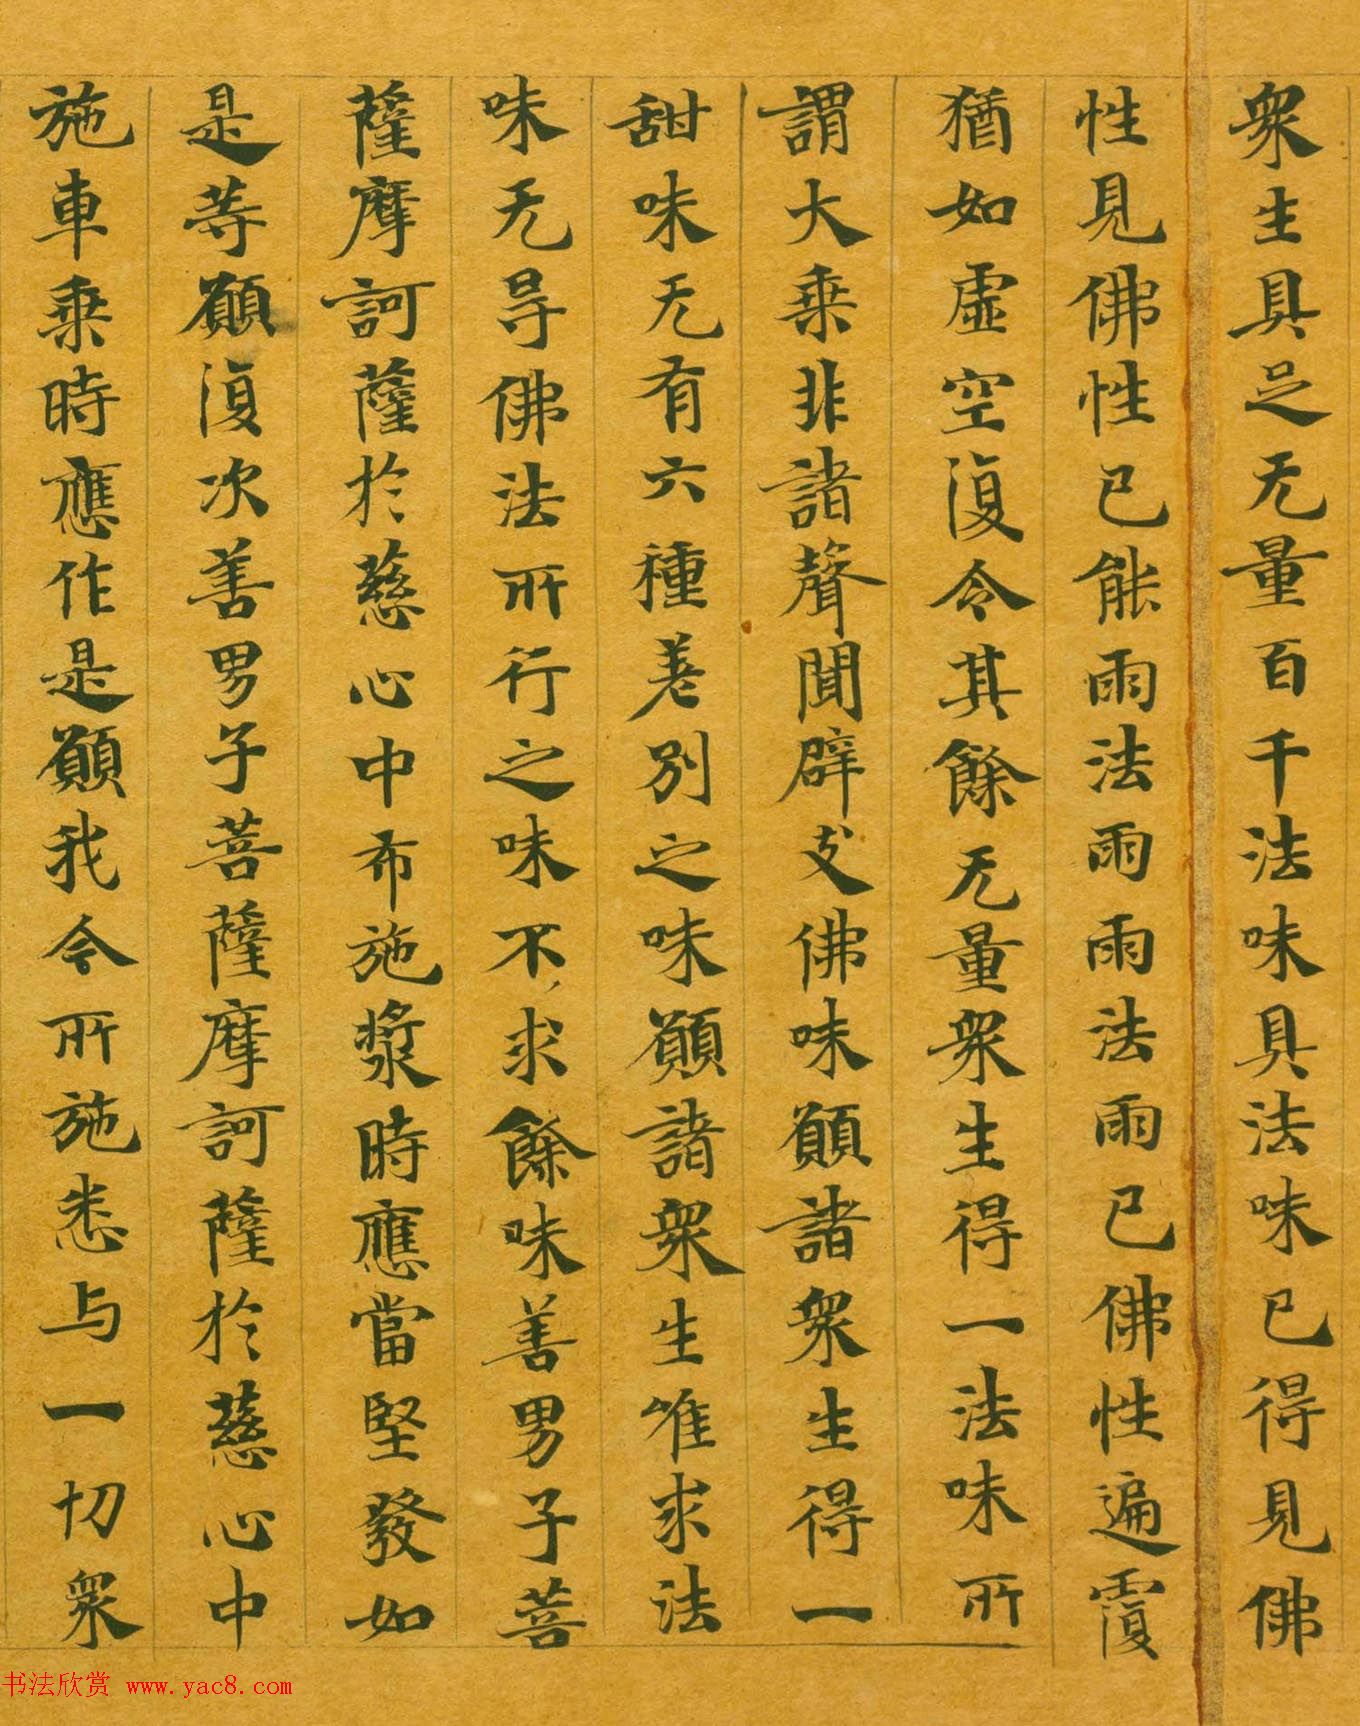 衆生具足无量百千法味具法味已得見佛
性見佛性已能雨法雨雨法雨已佛性遍覆
猶如虛空復令其餘无量衆生得一法味所
謂大乘非諸聲聞辟支佛味願諸衆生得一
甜味无有六種差別之味願諸衆生唯求法
味无导佛法所行之味不求餘味善男子菩
薩摩訶薩於慈心中布施漿時應當堅發如
是等願復次善男子菩薩摩訶薩於慈心中
施車乘時應作是願我今所施悉与一切衆
书法欣赏 www.yac8.com